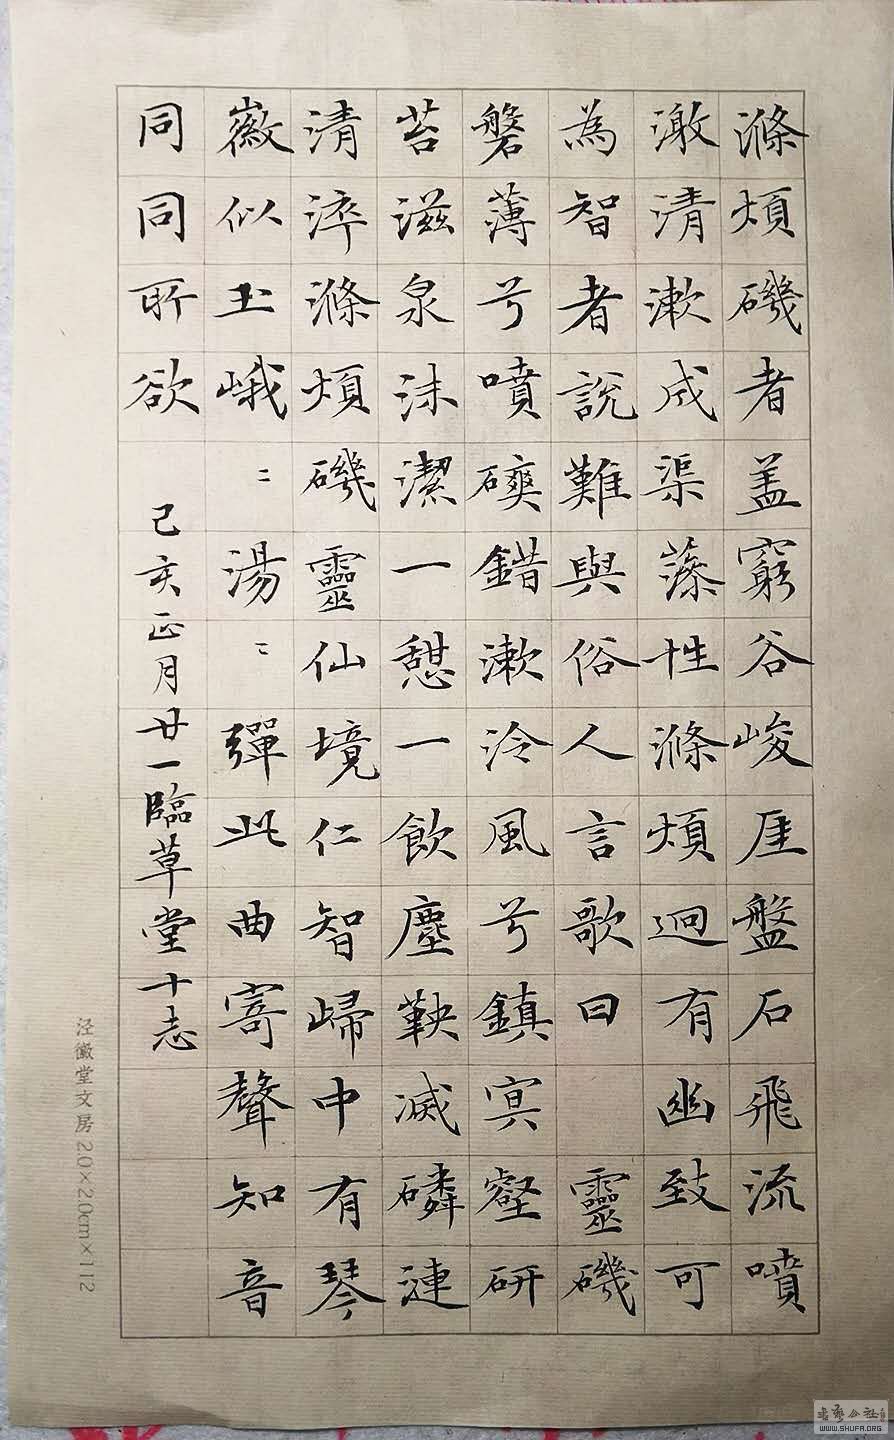 滌煩磯者盖窮谷峻厓盤石飛流噴
激清漱成渠蕩性滌煩迴有幽致可
為智者說難與俗人言歌曰靈磯
磐薄兮噴磢錯漱泠風兮鎮冥壑研
苔滋泉沫潔一憩一飲塵鞅滅磷漣
清淬滌煩磯靈仙境仁智歸中有琴
徽似玉峨〻湯〻彈此曲寄聲知音
同同所欲
己亥正月廿一臨草堂十志
泾徽堂文房20×20cm×112
書藝公社
WWW.SHUFA.ORG